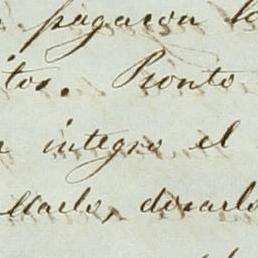 pagaron lo
tos. Pronto
integro el
llarlo, dorarlo